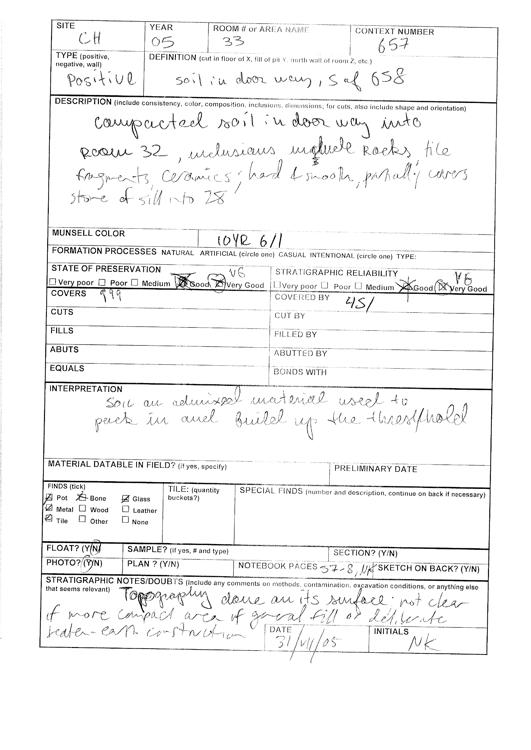 SITE YEAR ROOM # or AREA NAME CONTEXT NUMBER
CH 05 33 657
TYPE (positive, negative, wall) DEFINITION (cut in floor of X, fill of pit Y, north wall of room Z, etc.)
Positive soil in door way, S of 658
DESCRIPTION (include consistency, color, composition, inclusions, dimensions, for cuts, also include shape and orientation)
compacted soil in door way into
Room 32, inclusions include Rocks, tile
fragments, ceramics; hard & smooth, partially covers
stone of sill into 28
MUNSELL COLOR 10YR 6/1
FORMATION PROCESSES NATURAL ARTIFICIAL (circle one) CASUAL INTENTIONAL (circle one) TYPE:
STATE OF PRESERVATION VG STRATIGRAPHIC RELIABILITY VG
Very poor Poor Medium Good Very Good Very poor Poor Medium Good Very Good
COVERS 999 COVERED BY 451
CUTS CUT BY
FILLS FILLED BY
ABUTS ABUTTED BY
EQUALS BONDS WITH
INTERPRETATION
Soil an admixed material used to
pack in and build up the threshhold
MATERIAL DATABLE IN FIELD? (if yes, specify) PRELIMINARY DATE
FINDS (tick) TILE: (quantity buckets?) SPECIAL FINDS (number and description, continue on back if necessary)
Pot Bone Glass
Metal Wood Leather
Tile Other None
FLOAT? (Y/N) SAMPLE? (if yes, # and type) SECTION? (Y/N)
PHOTO? (Y/N) PLAN ? (Y/N) NOTEBOOK PAGES 57-8, NK SKETCH ON BACK? (Y/N)
STRATIGRAPHIC NOTES/DOUBTS (include any comments on methods, contamination, excavation conditions, or anything else
that seems relevant) Topography done on its surface. not clear
if more compact area of general fill or deliberate
beaten-earth construction
DATE INITIALS
31/VII/05 NK